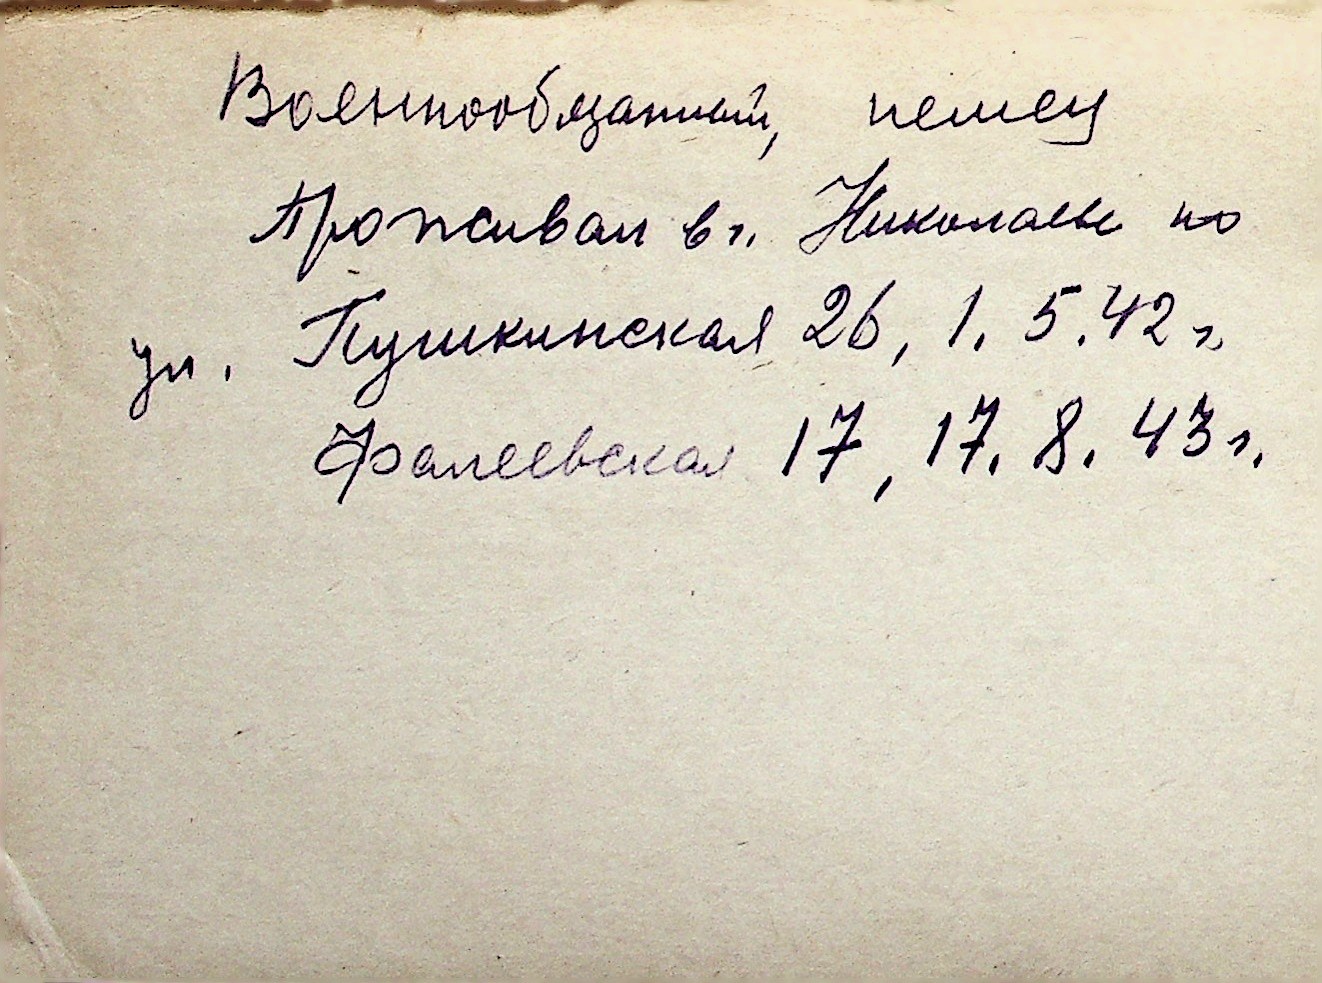 Военнообязанный, немец
Проживал в г. Николаеве по
ул. Пушкинская 26, 1. 5. 42 г.
Фалеевская 17, 17. 8. 43 г.